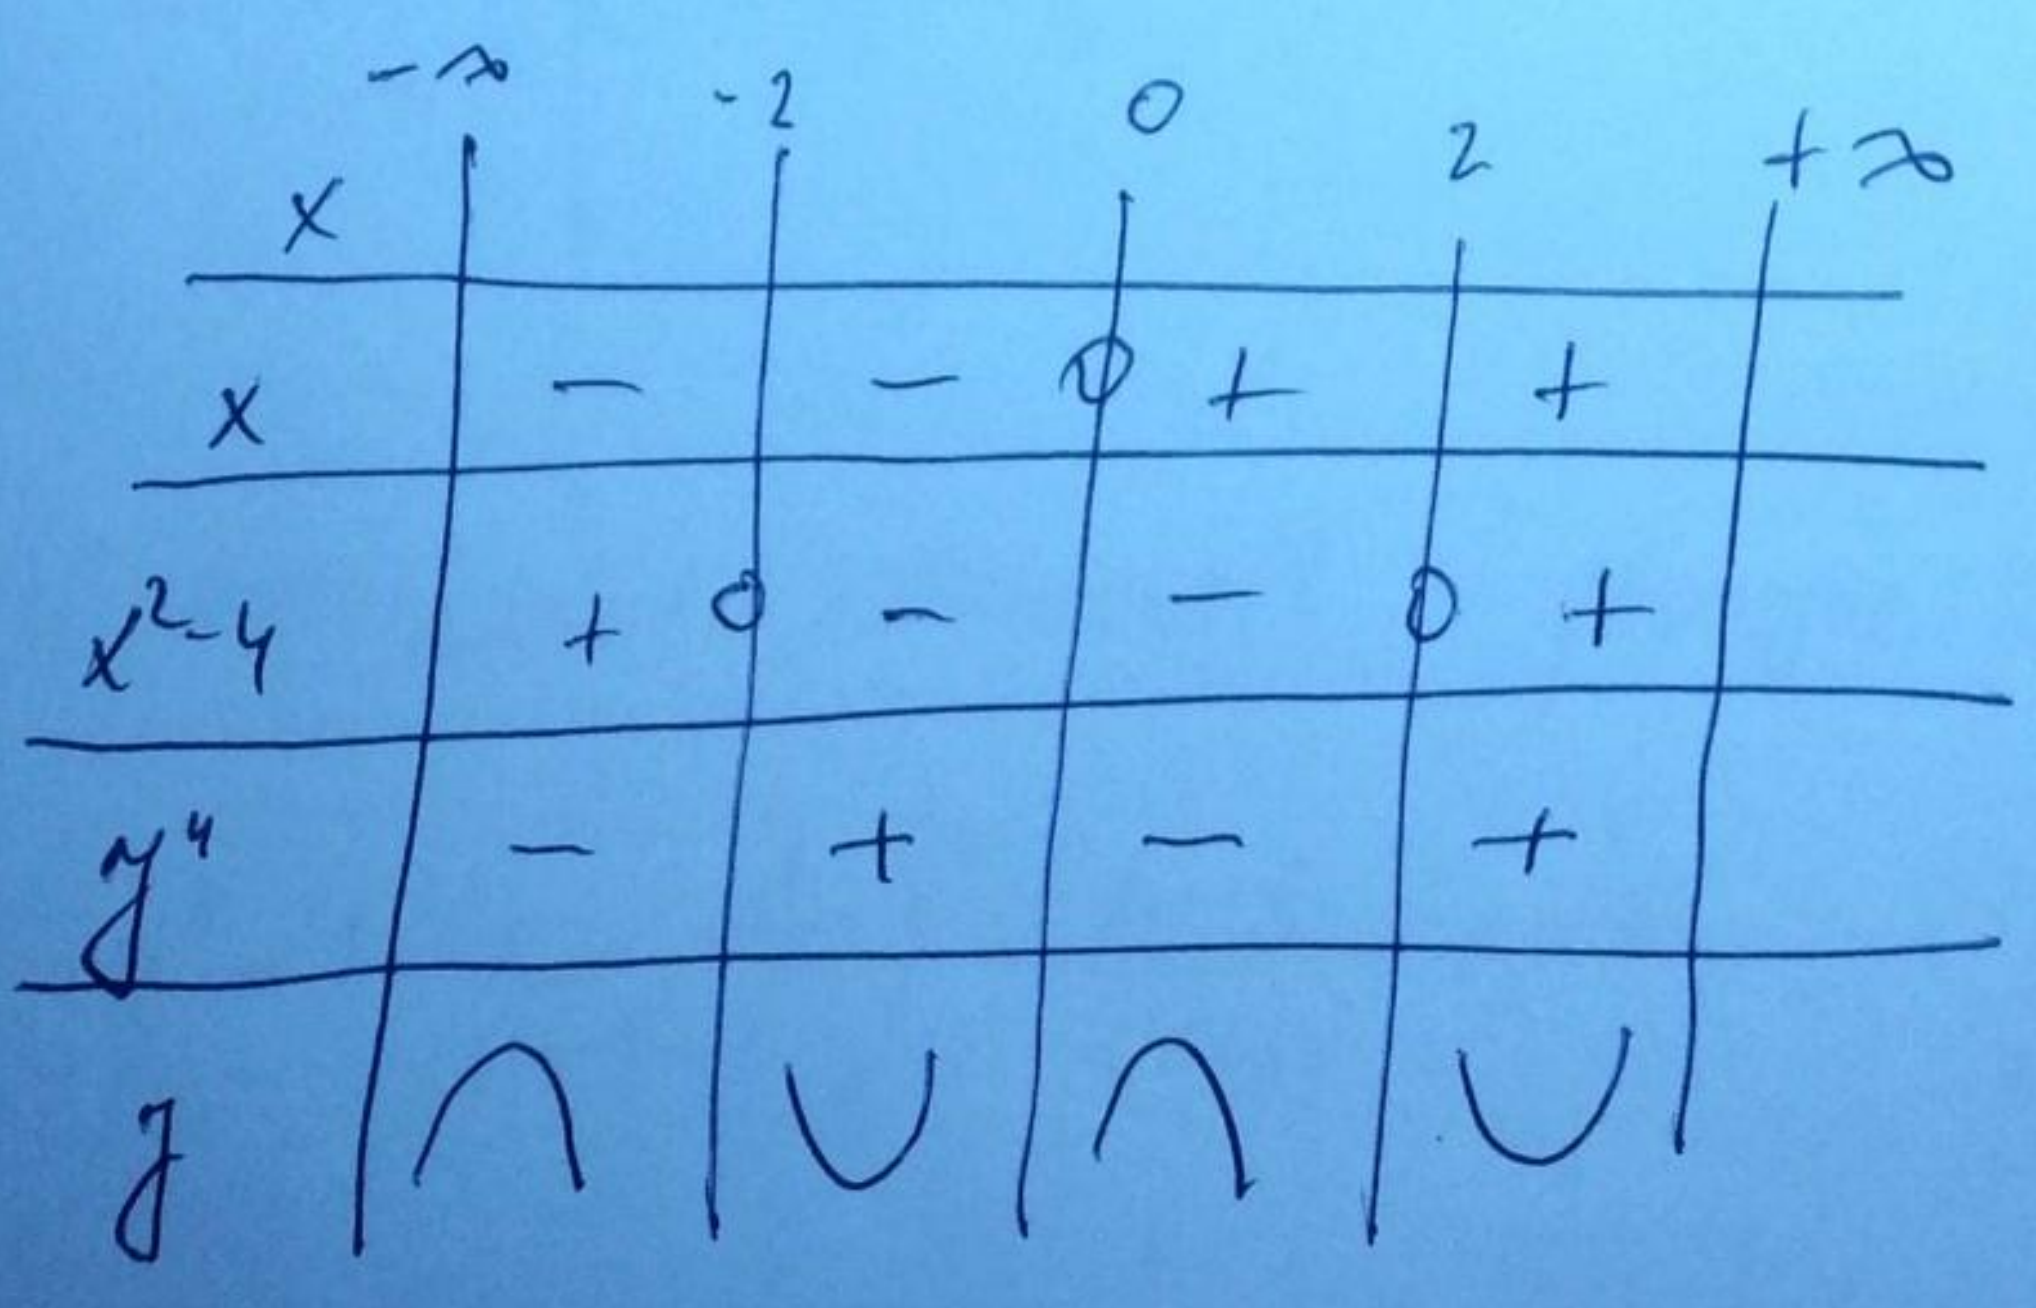 -∞ -2 0 2 +∞
x
x - - 0 + +
x²-4 + 0 - - 0 +
y" - + - +
y ∩ ∪ ∩ ∪